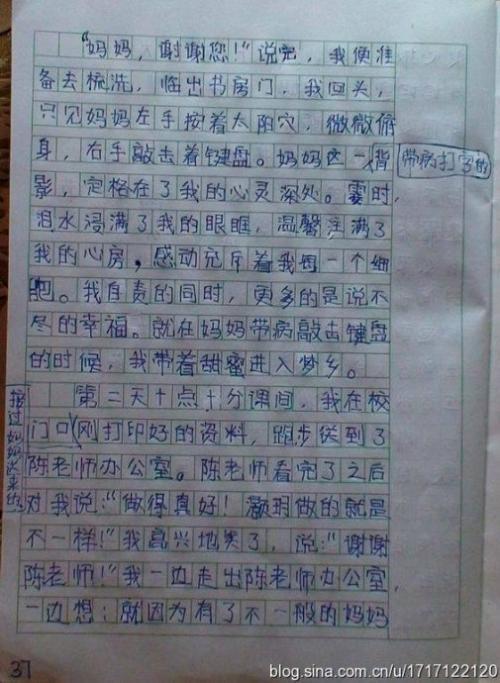 “妈妈，谢谢您！”说完，我便准
备去梳洗，临出书房门，我回头，
只见妈妈左手按着太阳穴，微微俯
身，右手敲击着键盘。妈妈这一背
带病打字的
影，定格在了我的心灵深处。霎时，
泪水浸满了我的眼眶，温馨注满了
我的心房，感动充斥着我每一个细
胞。我自责的同时，更多的是说不
尽的幸福。就在妈妈带病敲击键盘
的时候，我带着甜蜜进入梦乡。
第二天十点十分课间，我在校
门口刚打印好的资料，跑步送到了
接过妈妈送来的
陈老师办公室。陈老师看完了之后
对我说：“做得真好！灏玥做的就是
不一样！”我高兴地笑了，说：“谢谢
陈老师！”我一边走出陈老师办公室，
一边想：就因为有了不一般的妈妈
37
blog.sina.com.cn/u/1717122120